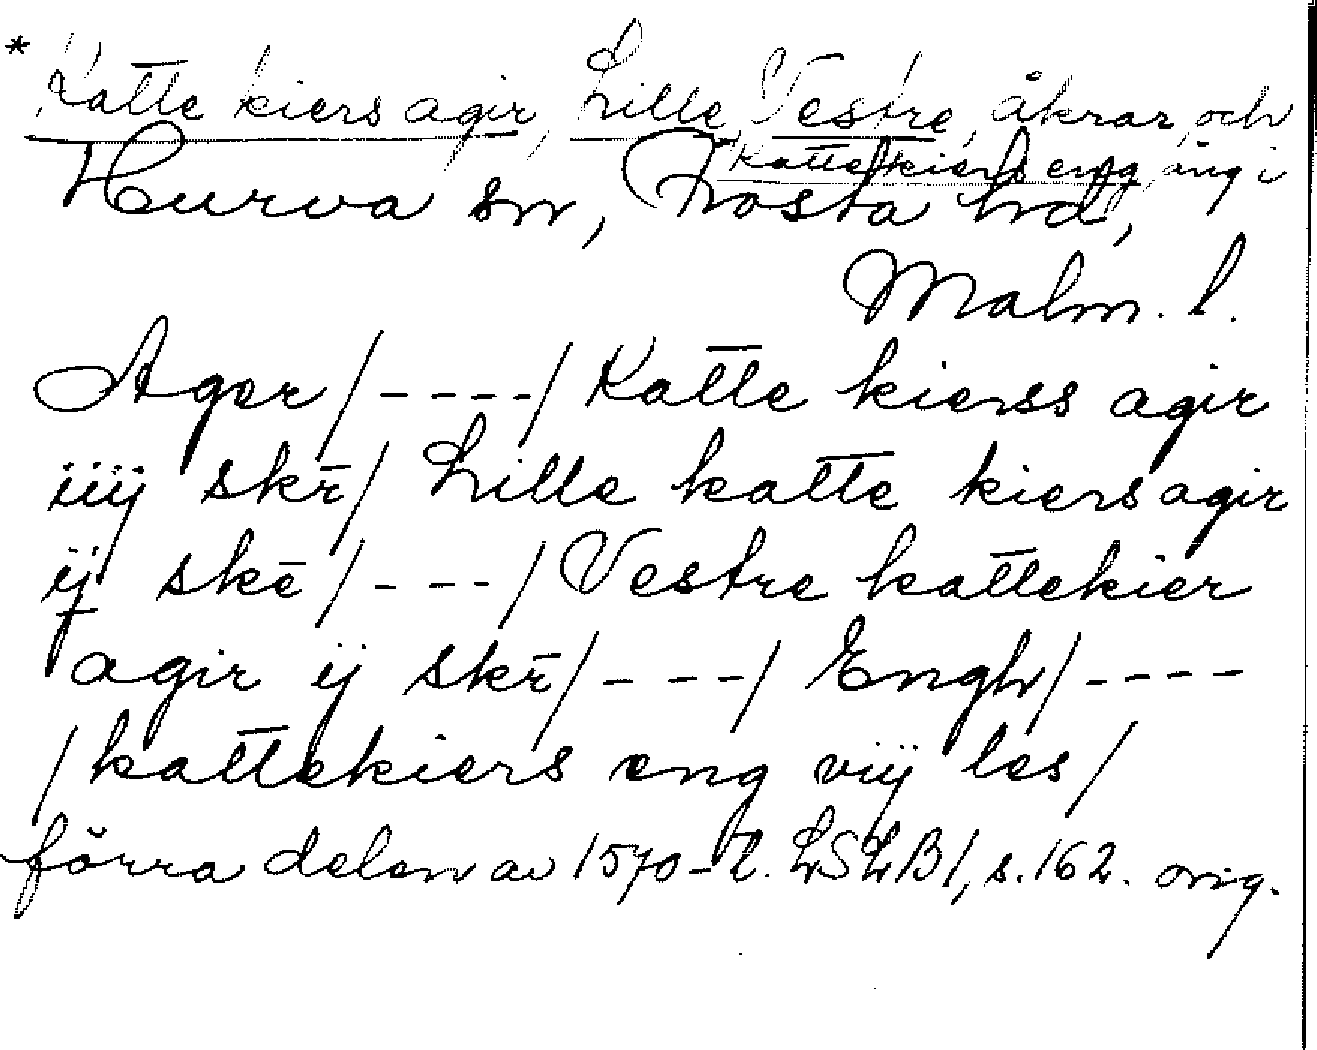 * Katte kiers agir, Lille, Vestre, åkrar, och
Kattekiers eng, äng i
Hurva sn, Frosta hd,
Malm. l.
Ager/----/Katte kierss agir
iiij skr̄/ Lille katte kiers agir
ij skē/---/Vestre kattekier
agir ij skr̄/---/ Engh/----
/kattekiers eng viij les/
förra delen av 1570-t. LSLB1, s. 162. orig.